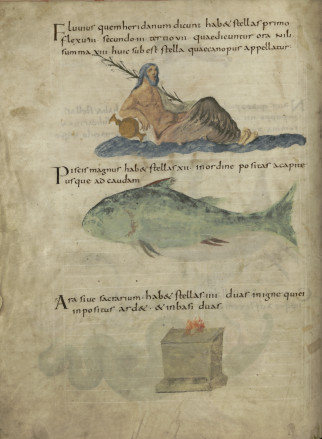 Fluvius quem heridanum dicunt hab& stellas primo
flexu iii secundo iii tertio vii quae dicuntur ora nili
summa xiii huic subest stella quae canopus appellatur
Piscis magnus hab& stellas xii · in ordine positas a capite
usque ad caudam
Ara sive sacrarium · hab& stellas iiii · duas in igne qui ei
inpositus ard& · & in basi duas